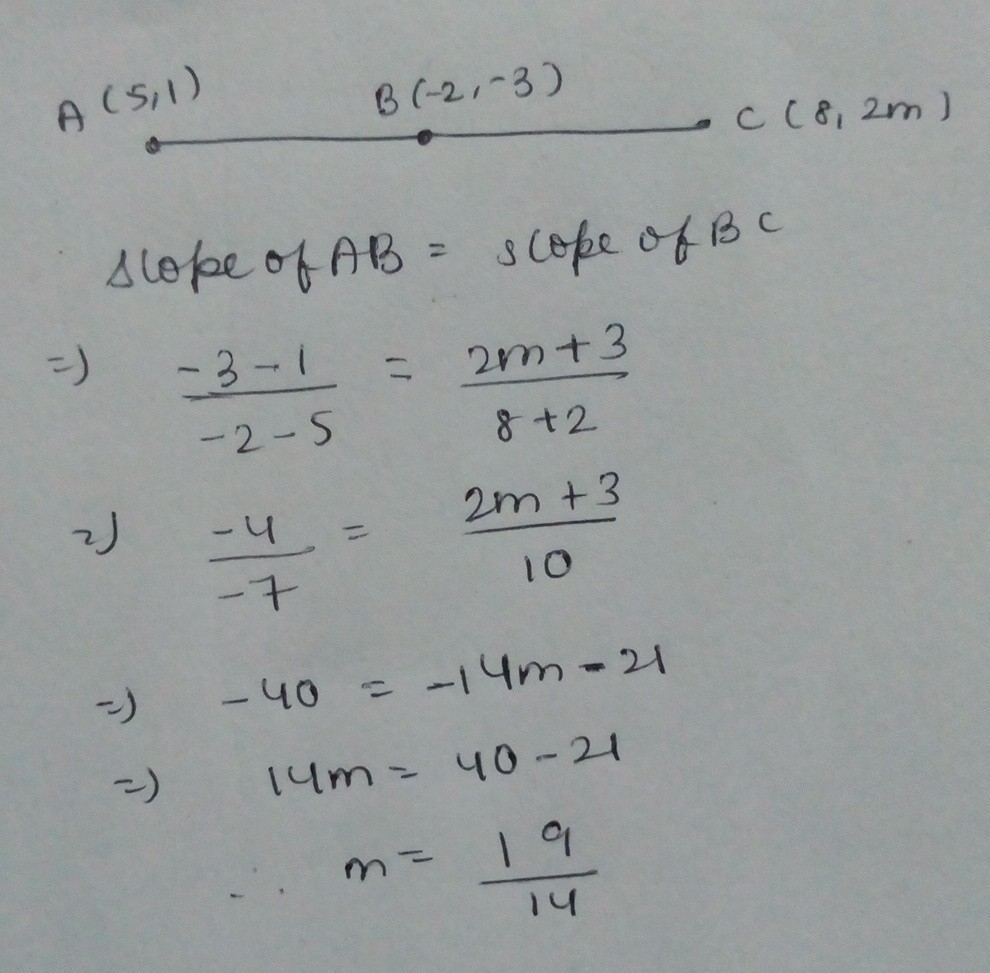 A (5,1) B (-2,-3) C (8, 2m)
slope of AB = slope of BC
=) -3-1/-2-5 = 2m+3/8+2
=) -4/-7 = 2m+3/10
=) -40 = -14m-21
=) 14m = 40-21
∴ m = 19/14